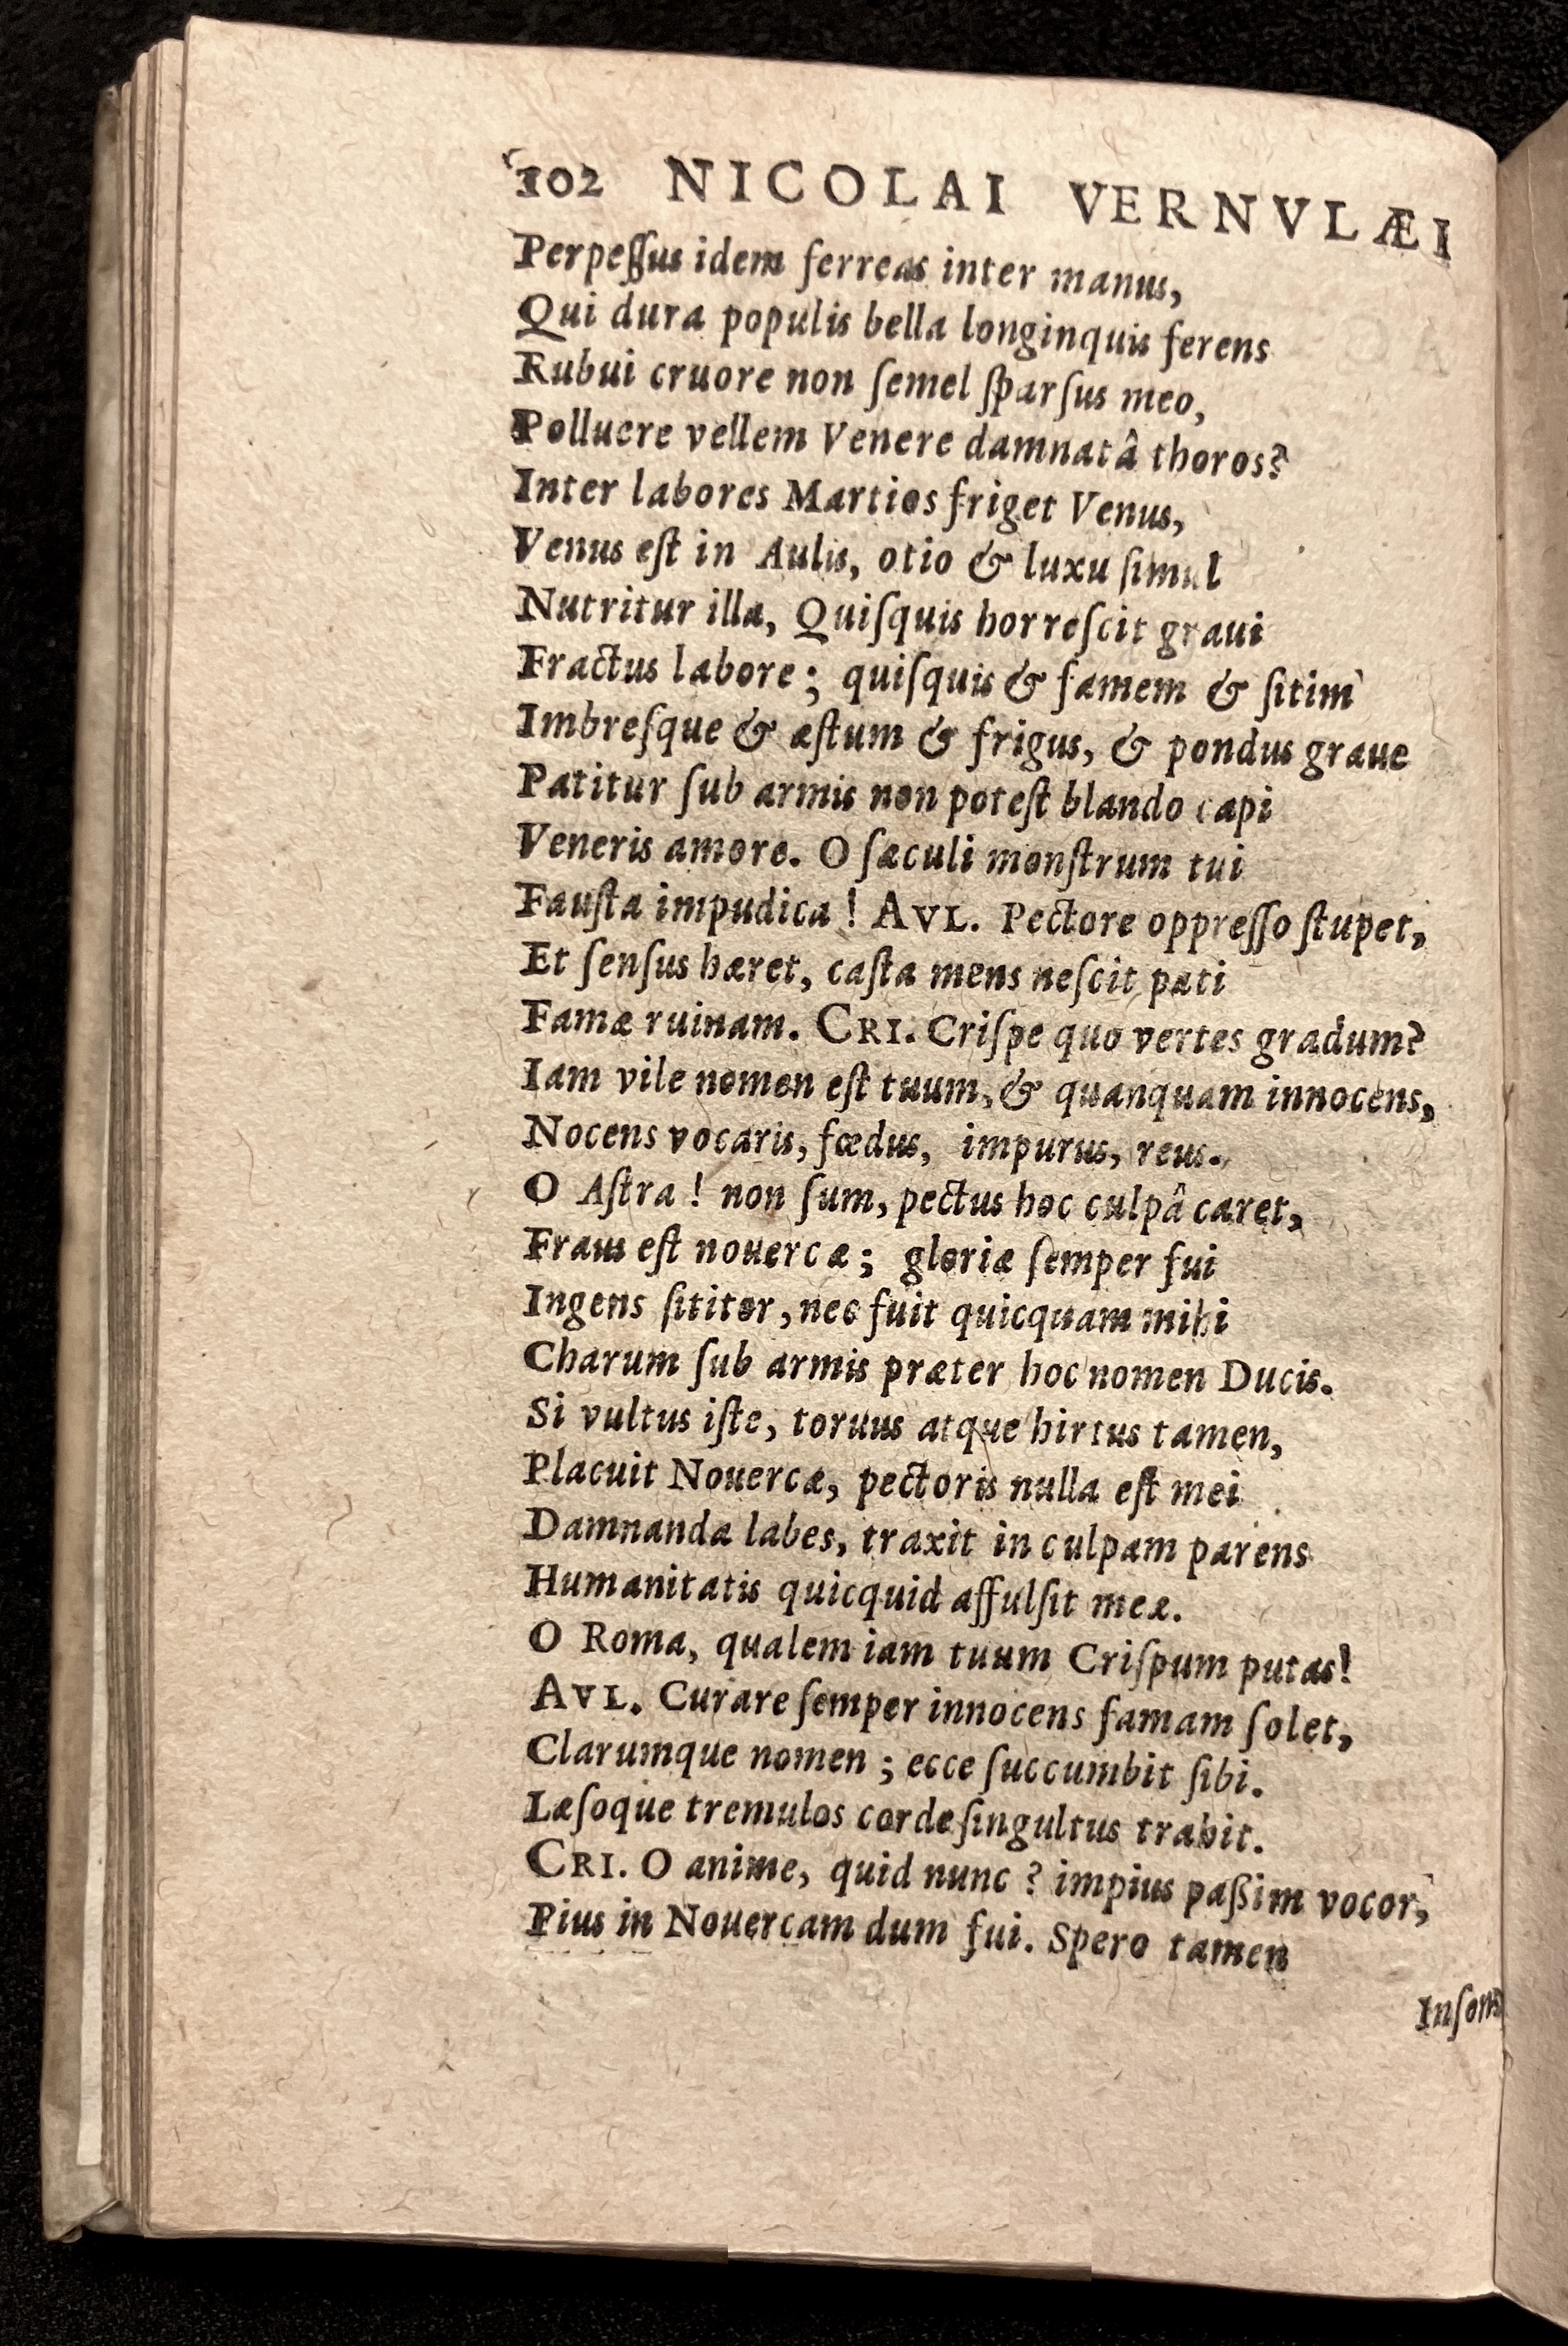 102 NICOLAI VERNVLÆI
Perpeſſus idem ferreas inter manus,
Qui dura populis bella longinquis ferens
Rubui cruore non ſemel ſparſus meo,
Polluere vellem Venere damnatâ thoros?
Inter labores Martios friget Venus,
Venus eſt in Aulis, otio & luxu ſimul
Nutritur illa, Quiſquis horreſcit graui
Fractus labore; quiſquis & famem & ſitim
Imbreſque & æſtum & frigus, & pondus graue
Patitur ſub armis non poteſt blando capi
Veneris amore. O ſæculi monſtrum tui
Fauſta impudica! AVL. Pectore oppreſſo ſtupet,
Et ſenſus hæret, caſta mens neſcit pati
Famæ ruinam. CRI. Criſpe quo vertes gradum?
Iam vile nomen eſt tuum, & quanquam innocens,
Nocens vocaris, fœdus, impurus, reus.
O Aſtra! non ſum, pectus hoc culpâ caret,
Fraus eſt nouercæ; gloriæ ſemper fui
Ingens ſititor, nec fuit quicquam mihi
Charum ſub armis præter hoc nomen Ducis.
Si vultus iſte, toruus atque hirtus tamen,
Placuit Nouercæ, pectoris nulla eſt mei
Damnanda labes, traxit in culpam parens
Humanitatis quicquid affulſit meæ.
O Roma, qualem iam tuum Criſpum putas!
AVL. Curare ſemper innocens famam ſolet,
Clarumque nomen; ecce ſuccumbit ſibi.
Læſoque tremulos corde ſingultus trahit.
CRI. O anime, quid nunc? impius paßim vocor,
Pius in Nouercam dum fui. Spero tamen
Inſons